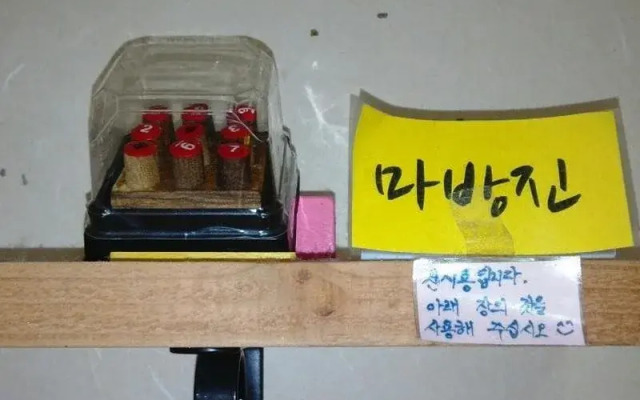 마방진
전시용입니다.
아래 장의 것을
사용해 주십시오
2